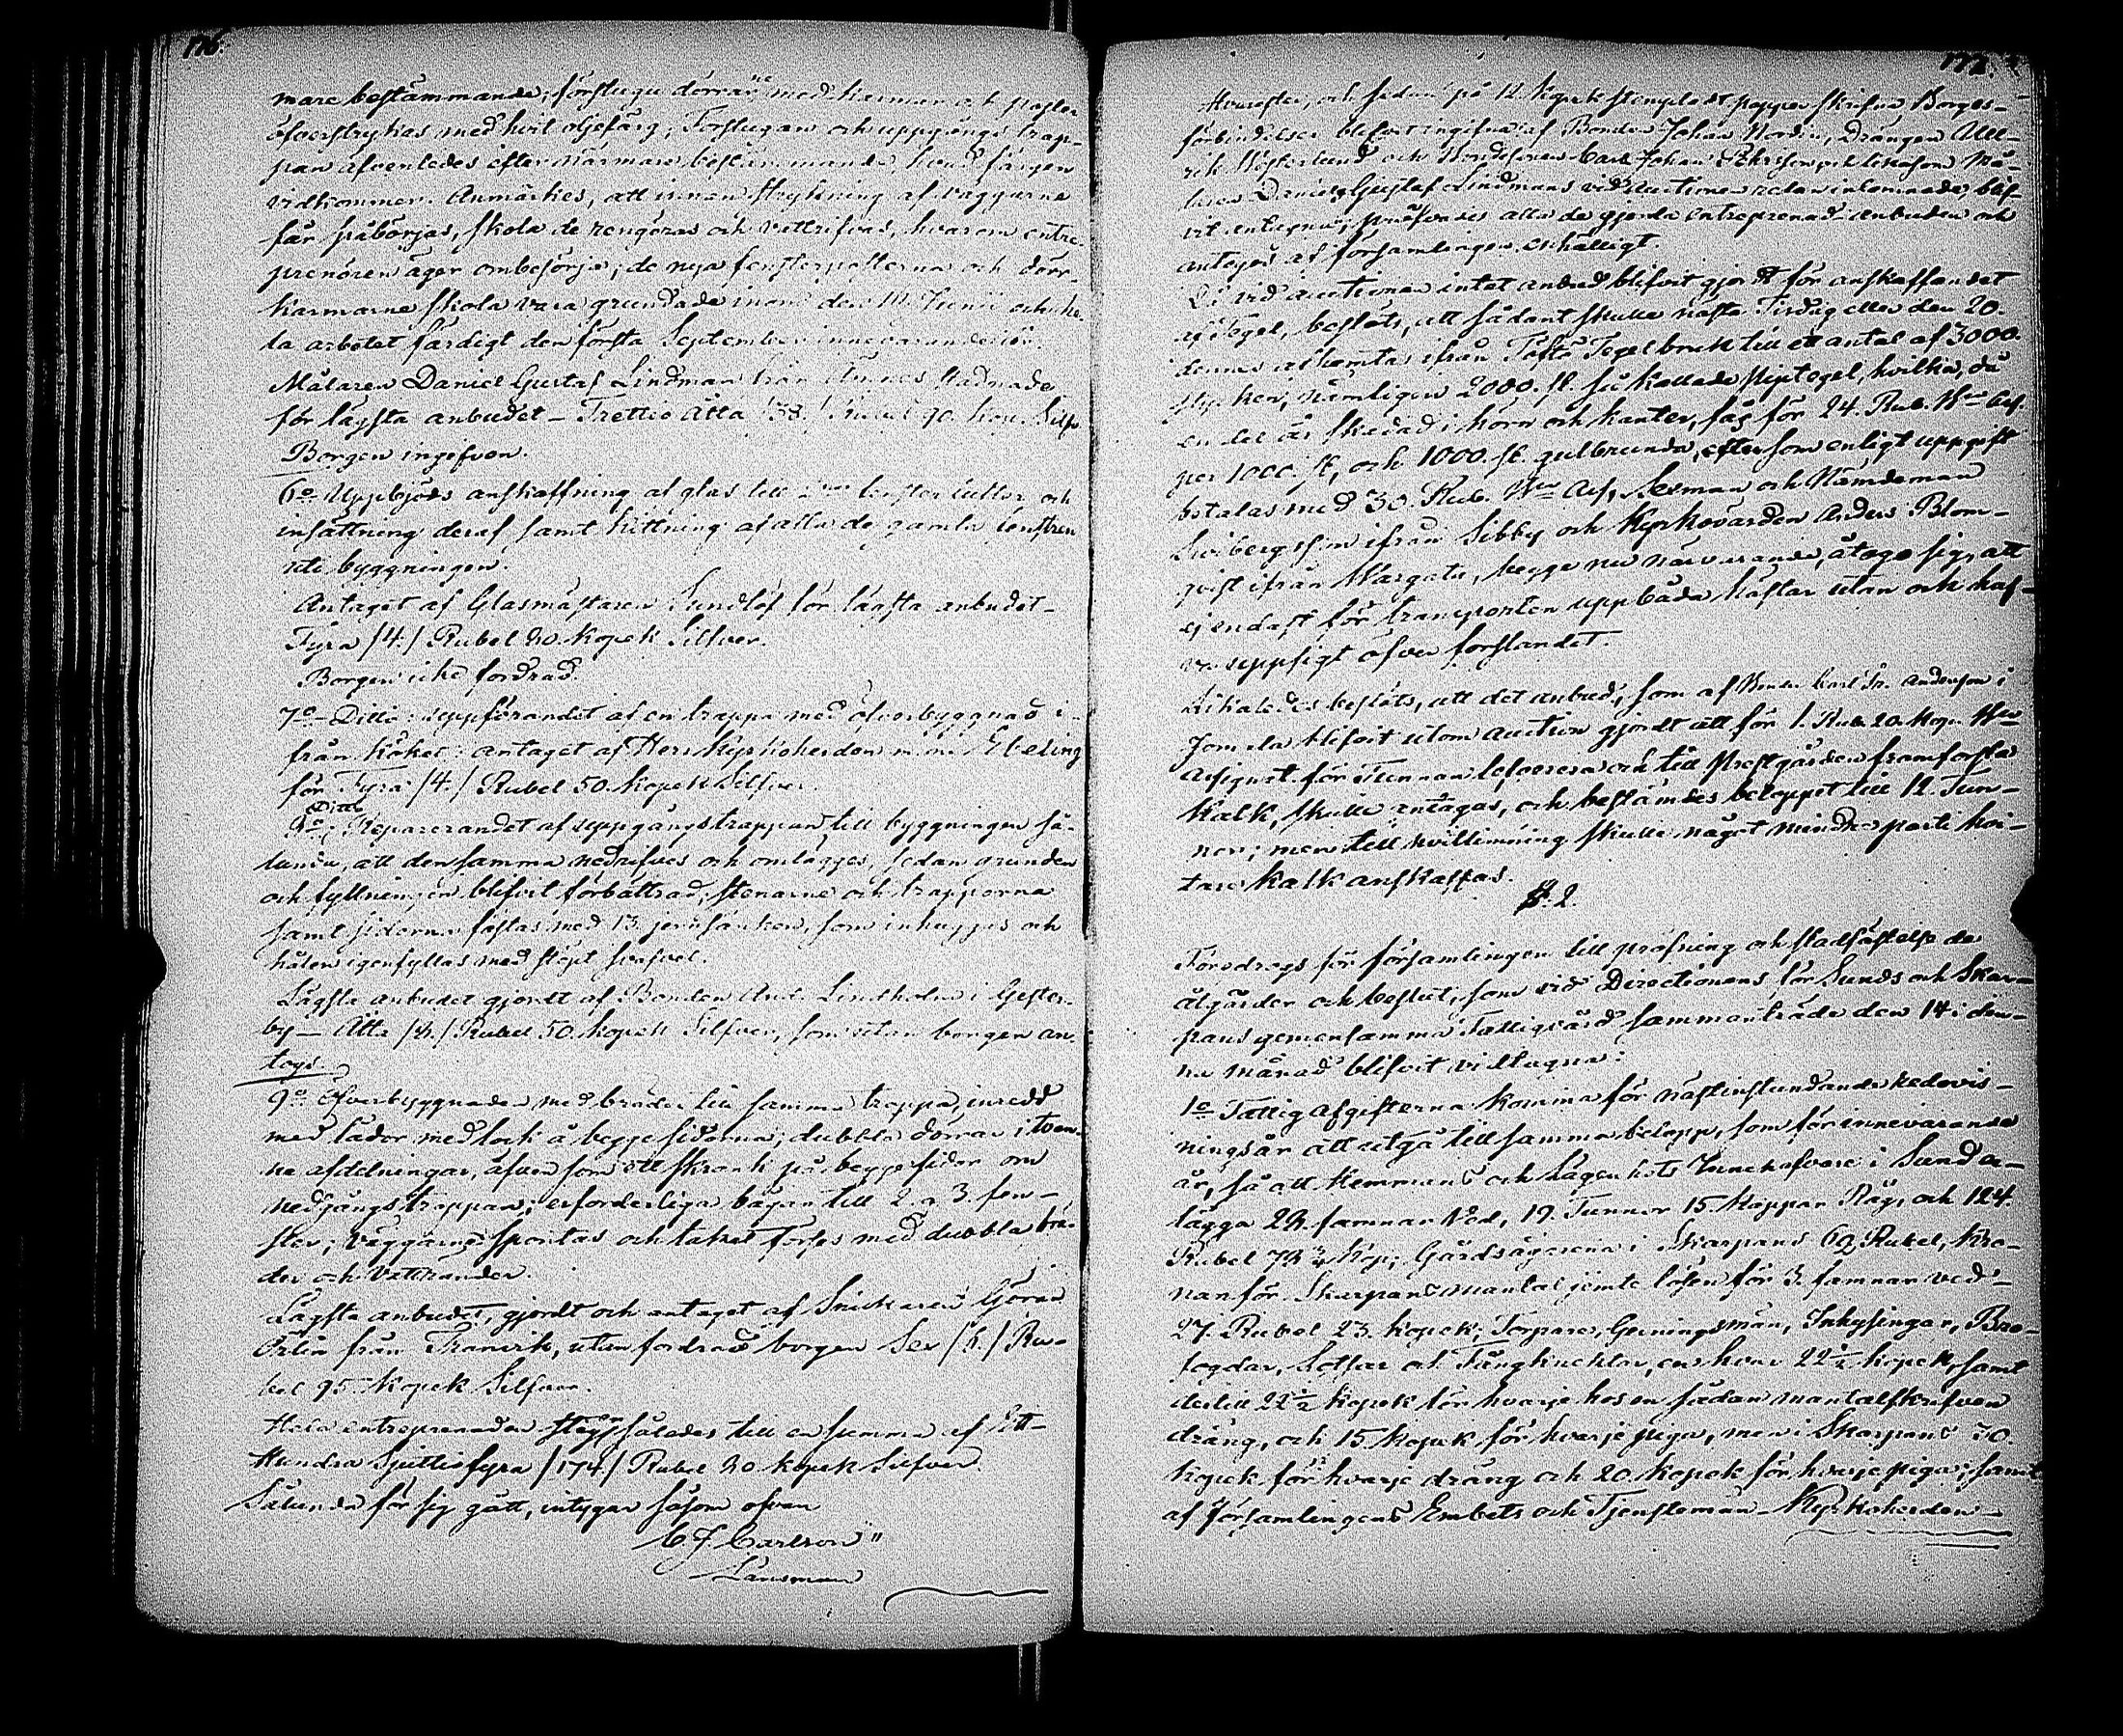 176.
mare bestämmande; förstugu dörrarne med karmar och poster
öfverstrykas med hvit oljefärg; Förstugan och uppgångs trap-
pan afvenledes efter närmare bestämmande, hvad färgen
vidkommer. Anmärkes, att innan strykning af väggarne
får påbörjas, skola de rengöras och vittrifvas, hvarom entre-
prenören äger ombesörja; de nya fensterposterna och dörr-
karmarne skola vara grundade inom den 10. Junii och he-
la arbetet färdigt den första September innevarande år.
Målaren Daniel Gustaf Lindman från stadnade
för lägsta anbudet – Trettio Åtta /38./ Rubel 90. kop. Silfv.
Borgen ingifven.
6o Uppbjöds anskaffning af glas till fenster lufter och
insättning deraf samt kittning af alla de gamla fenstren
uti byggningen.
Antaget af Glasmästaren Sundlöf för lägsta anbudet –
Fyra /4./ Rubel 20. Kopek Silfver.
Borgen icke fordrad.
7o – Ditto: uppförandet af en trappa med öfverbyggnad i-
från köket: antaget af Herr Kyrkoherden m. m. Ebeling
för Fyra /4./ Rubel 50. kopek Silfver.
Ditto
8o: Reparerandet af uppgångstrappan till byggningen så-
lunda, att densamma nedrifves och omlägges, sedan grunden
och fyllningen blifvit förbättrad; stenarne och trapporna
samt sidorna fästas med 13. jernsänken, som inhuggas och
hålen igenfyllas med stöpt svafvel.
Lägsta anbudet gjordt af Bonden And. Lindholm i Gester-
by – Åtta /8./ Rubel 50. kopek Silfver, som utan borgen an-
togs.
9o Öfverbyggnaden med bräder till samma trappa, inredd
med lådor med lock å begge sidorna; dubbla dörrar i tven-
ne afdelningar, äfven som ett skrank på begge sidor om
nedgångstrappan; erforderliga bågar till 2 a 3. fen-
ster; väggarne spontas och taket förses med dubbla brä-
der och vattränder.
Lägsta anbudet, gjordt och antaget af Snickaren Göran
Örlin från Tranvik, utan fordrad borgen Sex /6./ Ru-
bel 95. kopek Silfver.
Hela entreprenaden steg således till en summa af Ett-
Hundra Sjuttiofyra /174/ Rubel 20 kopek Silfver.
Sålunda för sig gått, intygar såsom ofvan
C J Carlson
Länsman
177.
Hvarefter, och sedan på 12. kopek stemplad papper skrifna Borges-
förbindelser blifvit ingifna af Bonden Johan Nordin, Drängen Ull-
rik Westerlund och Bondesonen Carl Johan Eriksson, och likasom Må-
laren Daniel Gustaf Lindmans vid auctionen redan inlemnade, blif-
vit antagna; pröfvades alla de gjorda entreprenad-anbuden och
antogos af församlingen enhälligt.
Då vid auctionen intet anbud blifvit gjordt för anskaffandet
af Tegel, beslöts, att sådant skulle nästa Tisdag eller den 20.
dennes afhemtas ifrån Tosta Tegelbruk till ett antal af 3000.
stycken, nämligen 2000. st. så kallade tegel, hvilka, då
en del är skadad i hörn och kanter, fås för 24. Rub. Bco Ass.
per 1000. st, och 1000. st. gulbrunda, eftersom enligt uppgift
betalas med 30. Rub. Bco Ass, Sexman och Nämdeman
ifrån Sibby och Kyrkovärden Anders Blom-
qvist ifrån Wargata, begge nu närvarande, åtogo sig, att
ej endast för transporten uppbåda hästar utan och haf-
va uppsigt öfver forslandet.
Likaledes beslöts, att det anbud, som af Bonden Carl Fr. Anderson i
Jomala blifvit utom auction gjordt att för 1. Rub. 20. kop. Bco
Assignat. för Tunnan lefverera och till Prestgården framforsla
Kalk, skulle antagas, och bestämdes beloppet till 12. Tun-
nor; men till hvitlimning skulle något mindre parti hvi-
tare kalk anskaffas.
§. 2.
Föredrogs för församlingen till pröfning och stadfästelse de
åtgärder och beslut, som vid Directionens för Sunds och Skar-
pans gemensamma Fattigvård sammanträde den 14 i den-
na månad blifvit vidtagna:
1o Fattigafgifterna komma för nästinstundande redovis-
ningsår att utgå till samma belopp, som för innevarande
år, så att Hemmans och Lägenhets Innehafvare i Sund er-
lägga 28. famnar Ved, 19. Tunnor 15. kappar Råg, och 124.
Rubel 78 3/4 kop; Gårdsägarena i Skarpans 62 Rubel, Kro-
nan för Skarpans mantal jemte lösen för 3. famnar ved
27. Rubel 23. kopek; Torpare, Gerningsmän, Inhysingar, Bro-
fogdar, Lotsar och Fångknektar, en hvar 22 1/2 kopek, samt
dertill 22 1/2 kopek för hvarje hos en sådan mantalskrefven
dräng, och 15. kopek för hvarje piga, men i Skarpans 30.
kopek för hvarje dräng och 20. kopek för hvarje piga; samt
af församlingens Embets och Tjensteman – Kyrkoherden –